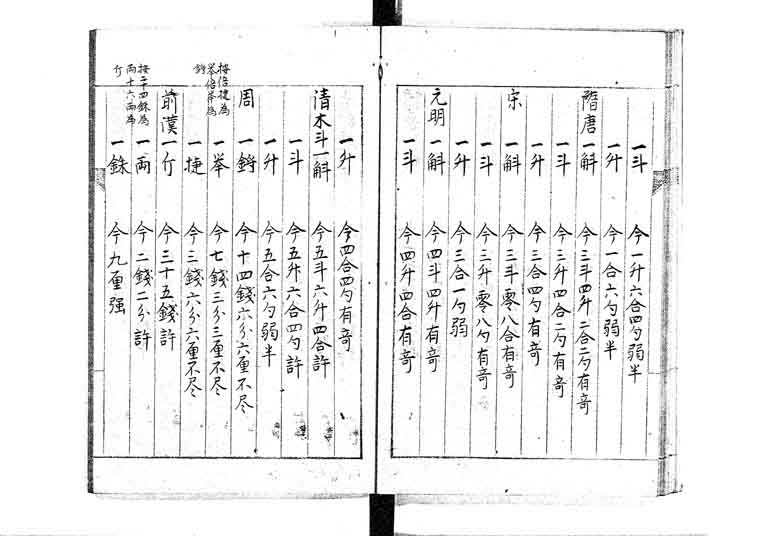 一斗 今一升六合四勺弱半
一升 今一合六勺弱半
隋唐 一斛 今三斗四升二合二勺有奇
一斗 今三升四合二勺有奇
一升 今三合四勺有奇
宋 一斛 今三斗零八合有奇
一斗 今三升零八勺有奇
一升 今三合一勺弱
元明 一斛 今四斗四升有奇
一斗 今四升四合有奇
一升 今四合四勺有奇
清木斗一斛 今五斗六升四合許
一斗 今五升六合四勺許
一升 今五合六勺弱半
周 一鋝 今十四錢六分六厘不尽
按倍捷為
举倍举為
鋝
一举 今七錢三分三厘不尽
一捷 今三錢六分六厘不尽
前漢一斤 今三十五錢許
按二十四銖為
両十六両為
斤
一両 今二錢二分許
一銖 今九厘强